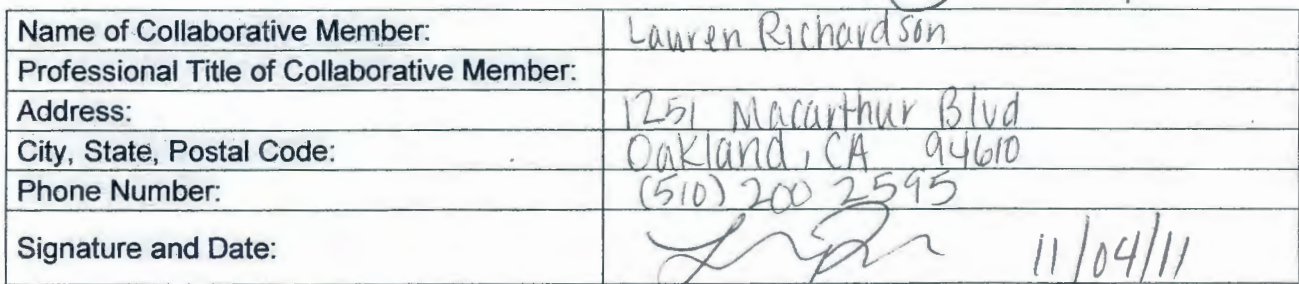 Name of Collaborative Member: Lauren Richardson
Professional Title of Collaborative Member:
Address: 1251 Macarthur Blvd
City, State, Postal Code: Oakland, CA 94610
Phone Number: (510) 200 2595
Signature and Date: 11/04/11